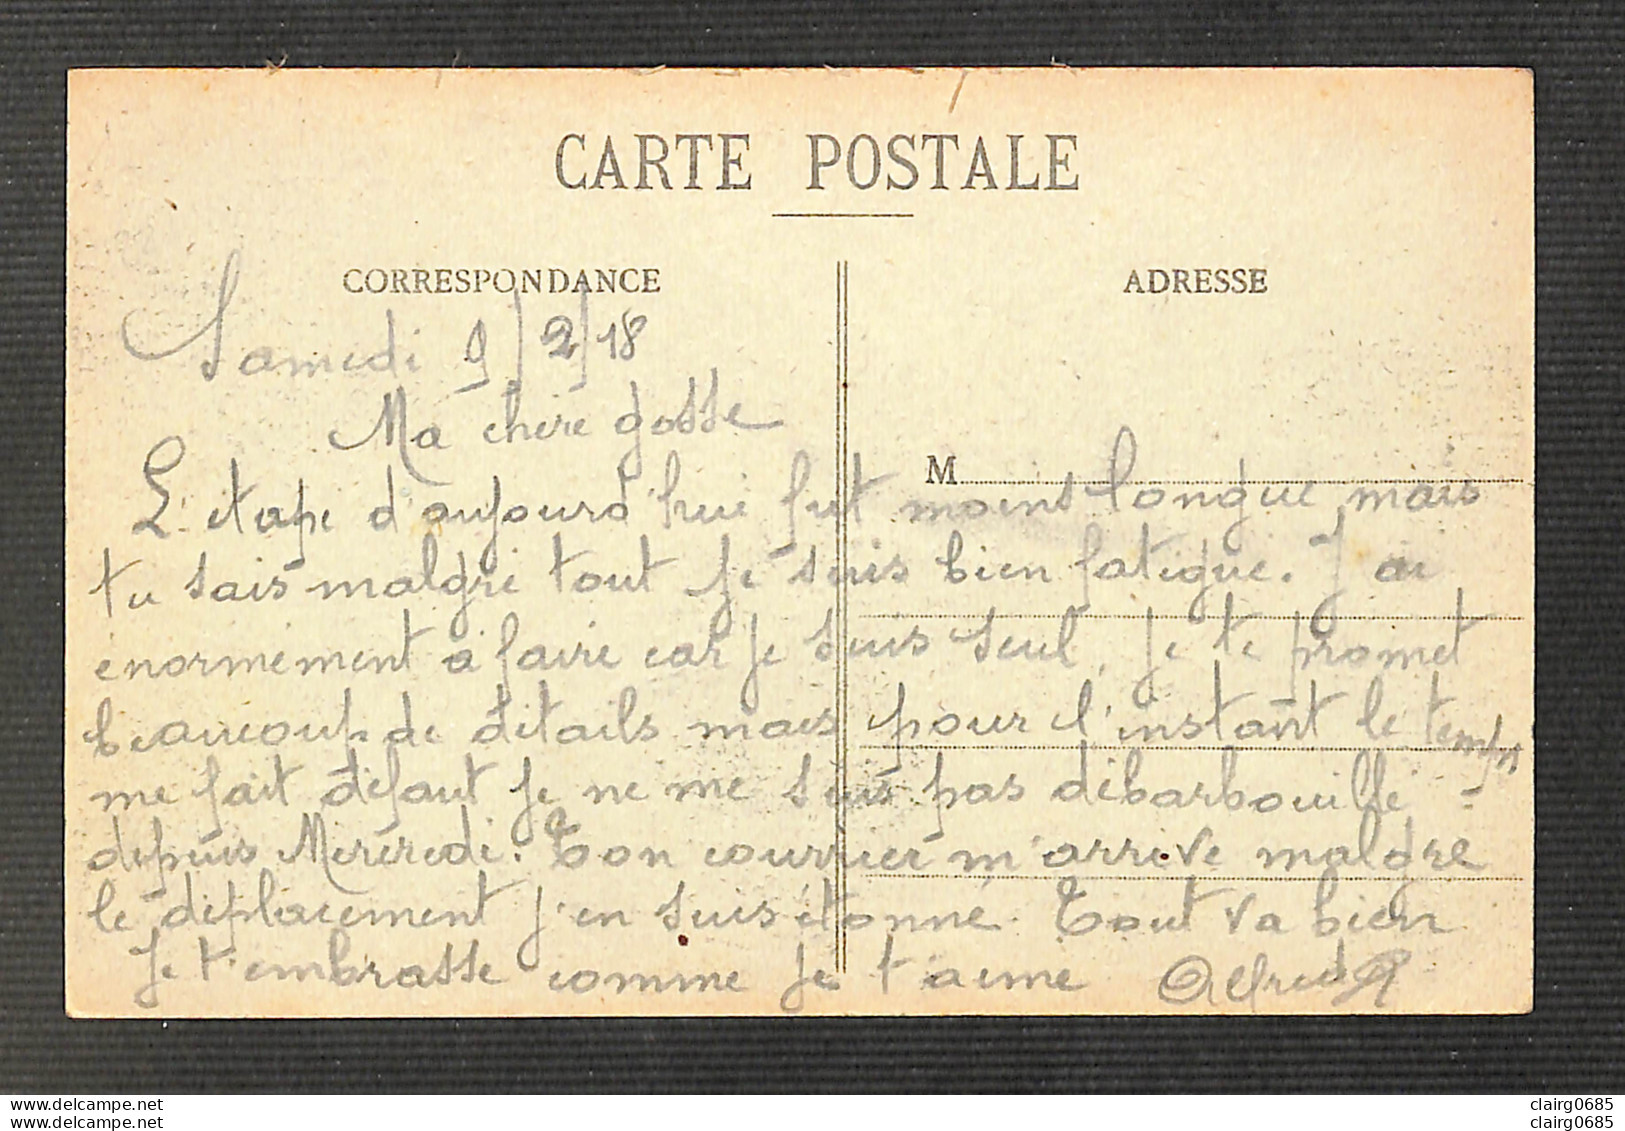 CARTE POSTALE
CORRESPONDANCE
ADRESSE
Samedi 9/2/18
Ma chère gosse
M
L'etape d'aujourd'hui fut moins longue mais
tu sais malgré tout je suis bien fatigué. J'ai
enormement à faire car je suis seul, je te promet
beaucoup de détails mais pour l'instant le temps
me fait défaut je ne me suis pas débarbouillé
depuis Mercredi. Ton courrier m'arrive maldré
le déplacement j'en suis étonné. Tout va bien
Je t'embrasse comme je t'aime Alfred
clairg0685
clairg0685
clairg0685
clairg0685